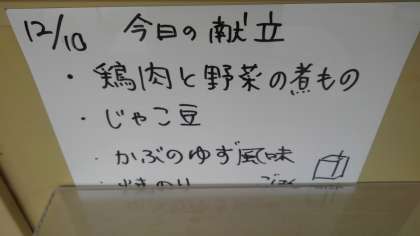 12/10 今日の献立
・鶏肉と野菜の煮もの
・じゃこ豆
・かぶのゆず風味